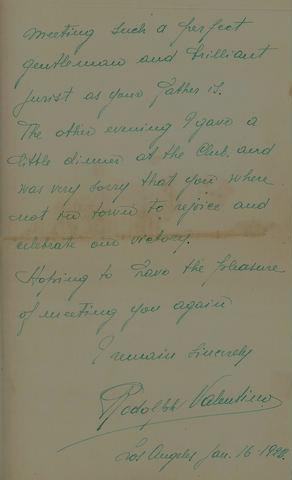 meeting such a perfect
gentleman and brilliant
jurist as your Father is.
The other evening I gave a
little dinner at the Club. and
was very sorry that you where
not in town to rejoice and
celebrate our victory.
Hoping to have the pleasure
of meeting you again
I remain Sincerely
Rodolph Valentino
Los Angeles Jan. 16-